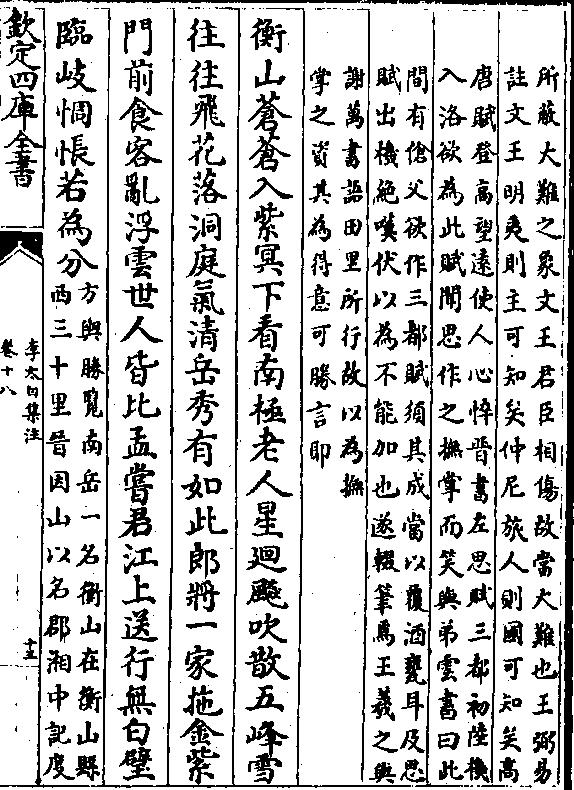 所蔽大難之象文王君臣相傷故當大難也王弼易
註文王明夷則主可知矣仲尼旅人則國可知矣高
唐賦登高望遠使人心悴晉書左思賦三都初陸機
入洛欲為此賦聞思作之撫掌而笑與弟雲書曰此
間有傖父欲作三都賦須其成當以覆酒甕耳及思
賦出機絶嘆伏以為不能加也遂輟筆焉王羲之與
謝萬書語田里所行故以為撫
掌之資其為得意可勝言耶
衡山蒼蒼入紫冥下看南極老人星廻飈吹散五峰雪
往往飛花落洞庭氣清岳秀有如此郎將一家拖金紫
門前食客亂浮雲世人皆比孟嘗君江上送行無白璧
臨岐惆悵若為分
方輿勝覽南岳一名衡山在衡山縣
西三十里晉因山以名郡湘中記度
欽定四庫全書
李太白集注
卷十八
十五